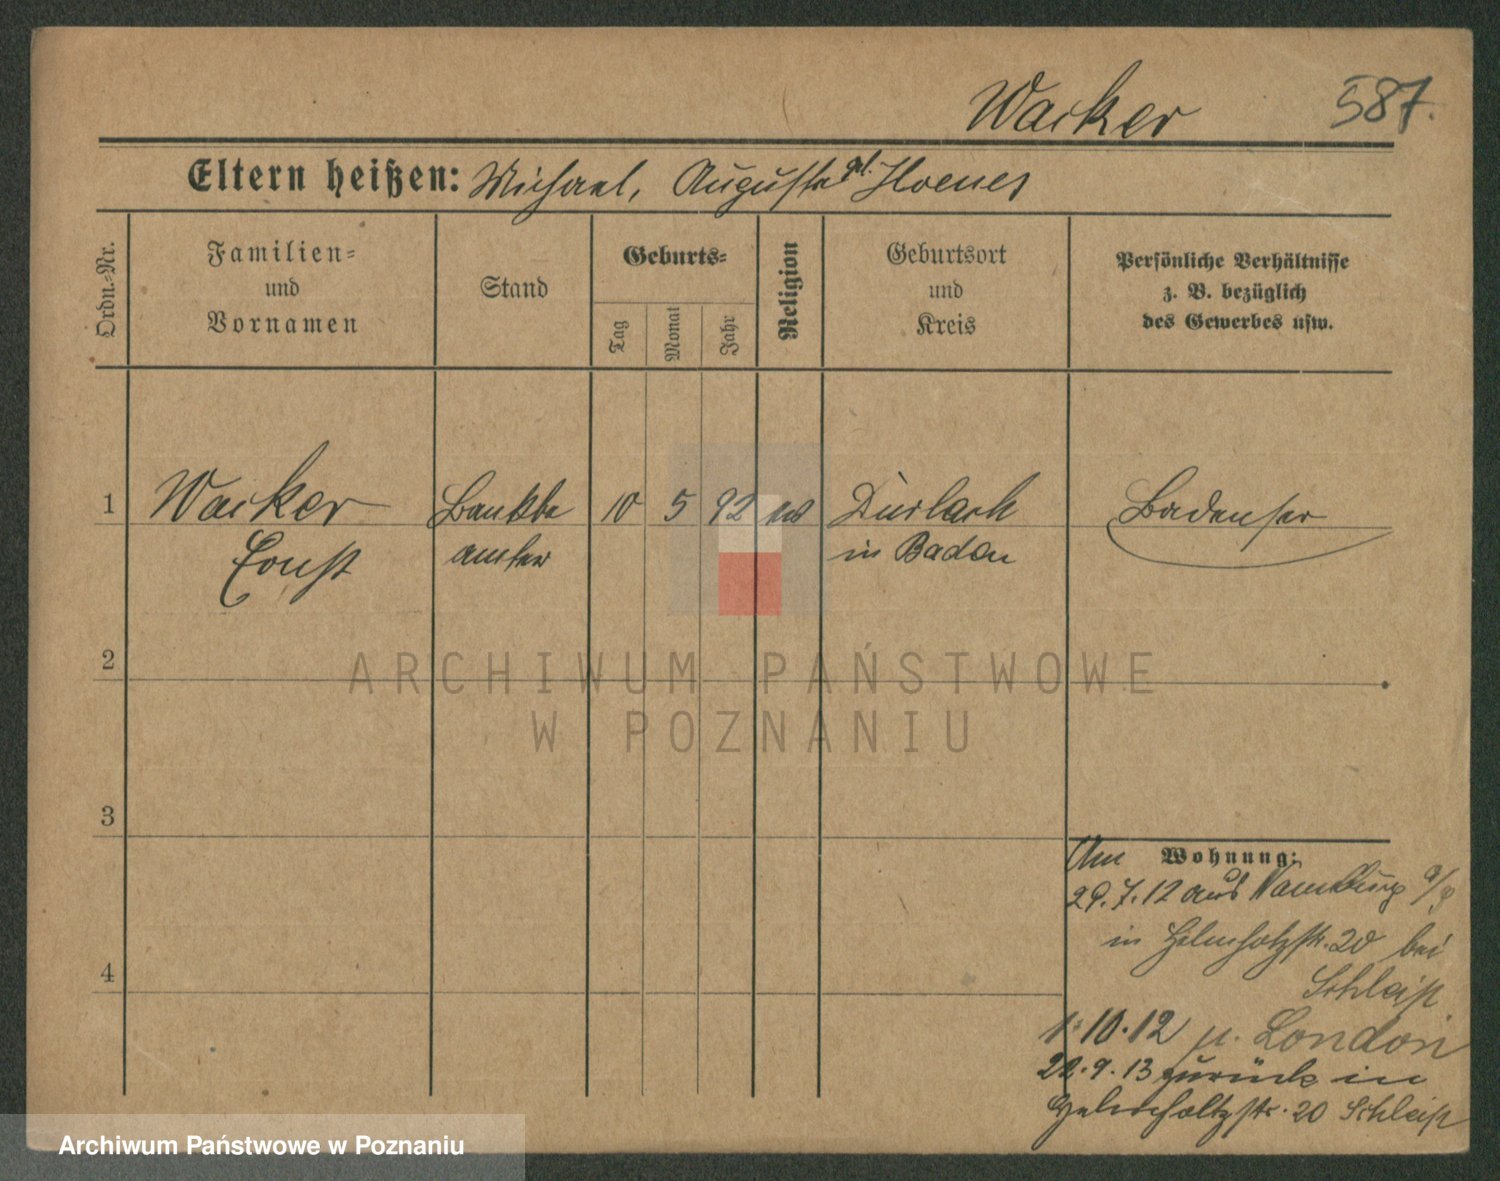 Wacker 587.
Eltern heißen: Michael, Auguste
Ordn.-Nr.
Familien-
und
Vornamen
Stand
Geburts-
Tag
Monat
Jahr
Religion
Geburtsort
und
Kreis
Persönliche Verhältnisse
z. B. bezüglich
des Gewerbes usw.
1 Wacker Bankbe 10 5 92 Durlach Badenser
Ernst amter in Baden
2
3
4
Wohnung:
Am
29.7.12 aus Naumburg
in Helmholzstr. 20 bei
Schleiß
1.10.12 n. London
22.9.13 zurück in
Helmholtzstr. 20 Schleiß
ARCHIWUM PAŃSTWOWE
W POZNANIU
Archiwum Państwowe w Poznaniu